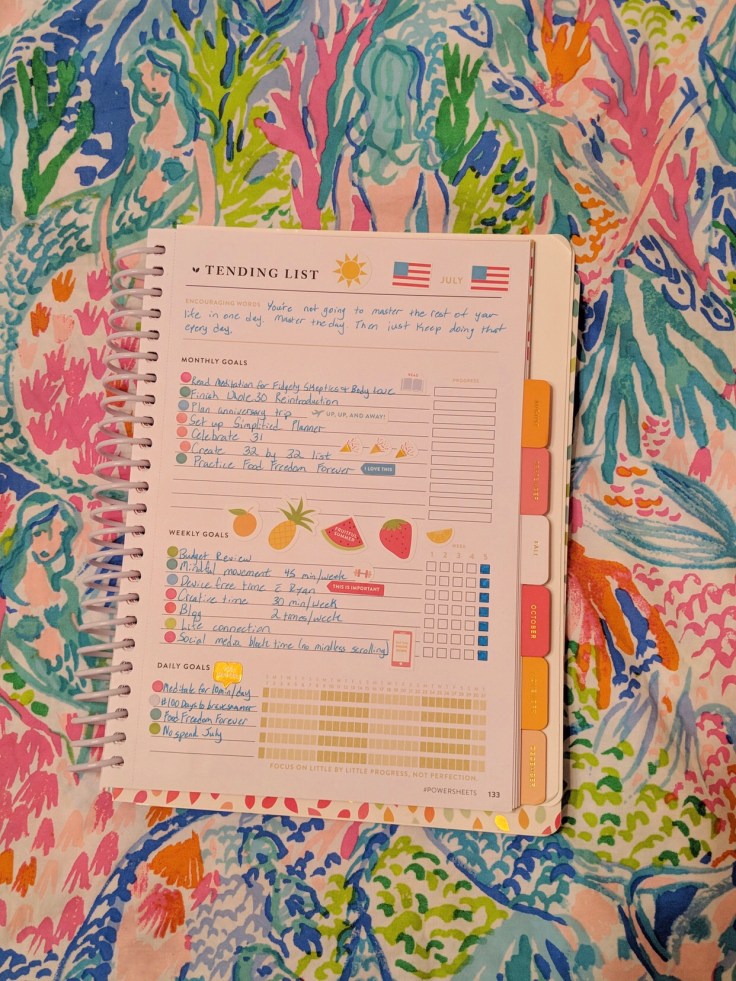 TENDING LIST
JULY
ENCOURAGING WORDS You're not going to master the rest of your
life in one day. Master the day. Then just keep doing that
every day.
MONTHLY GOALS
READ
PROGRESS
Read Meditation for Fidgety Skeptics + Body Love
Finish Whole 30 Reintroduction
Plan anniversary trip UP, UP, AND AWAY!
Set up Simplified Planner
Celebrate 31
Create 32 by 32 list
Practice Food Freedom Forever I LOVE THIS
FRUITFUL
SUMMER
WEEKLY GOALS
WEEK
1 2 3 4 5
Budget Review
Mindful movement 45 min/week
Device free time c Ryan THIS IS IMPORTANT
Creative time 30 min/week
Blog 2 times/week
Life connection
Social media block time (no mindless scrolling)
DAILY GOALS
Meditate for 10min/day
#100 Days to brave summer
Food Freedom Forever
No spend July
FOCUS ON LITTLE BY LITTLE PROGRESS, NOT PERFECTION.
#POWERSHEETS 133
OCTOBER
DECEMBER